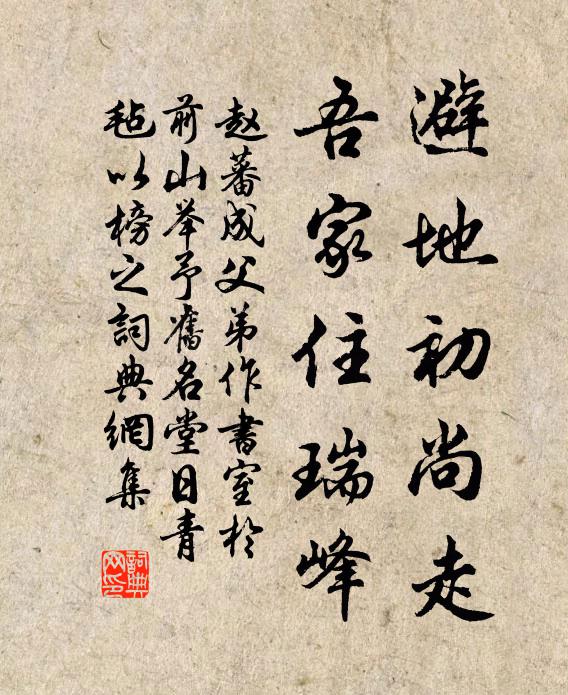 避地初尚走
吾家住瑞峰
赵蕃成父弟作書室於
前山举予舊名堂日青
毡以榜之詞典網集
詞典網印